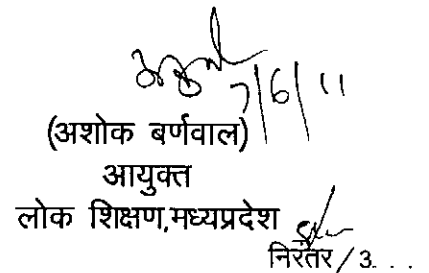 7/6/11
(अशोक बर्णवाल)
आयुक्त
लोक शिक्षण,मध्यप्रदेश
निरंतर/3...